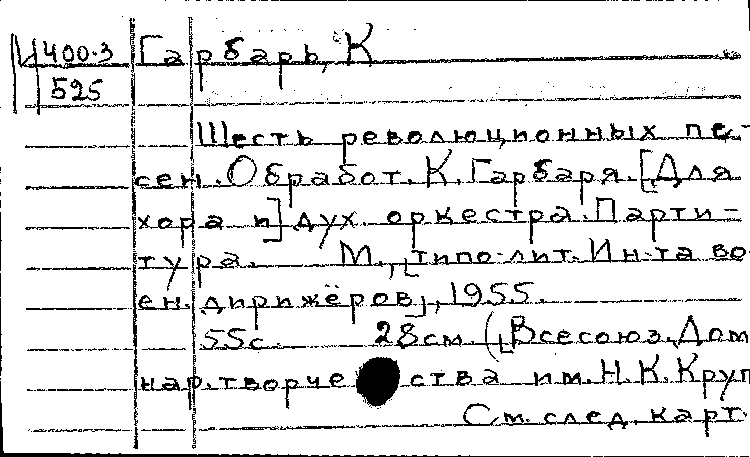 И400-3 Гарбарь, К
525
Шесть революционных пе-
сен. Обработ. К. Гарбаря. [Для
хора и] дух. оркестра. Парти-
тура. М., [типо-лит. Ин-та во-
ен. дирижёров], 1955.
55с. 28см. ([Всесоюз. Дом
нар. творчества им. Н. К. Круп
См. след. карт.